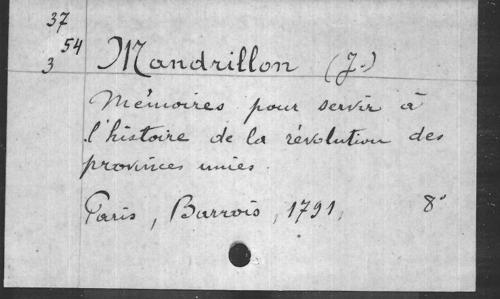 37
54
3
Mandrillon (J.)
Mémoires pour servir à
l'histoire de la révolution des
provinces unies.
Paris, Barrois, 1791, 8°